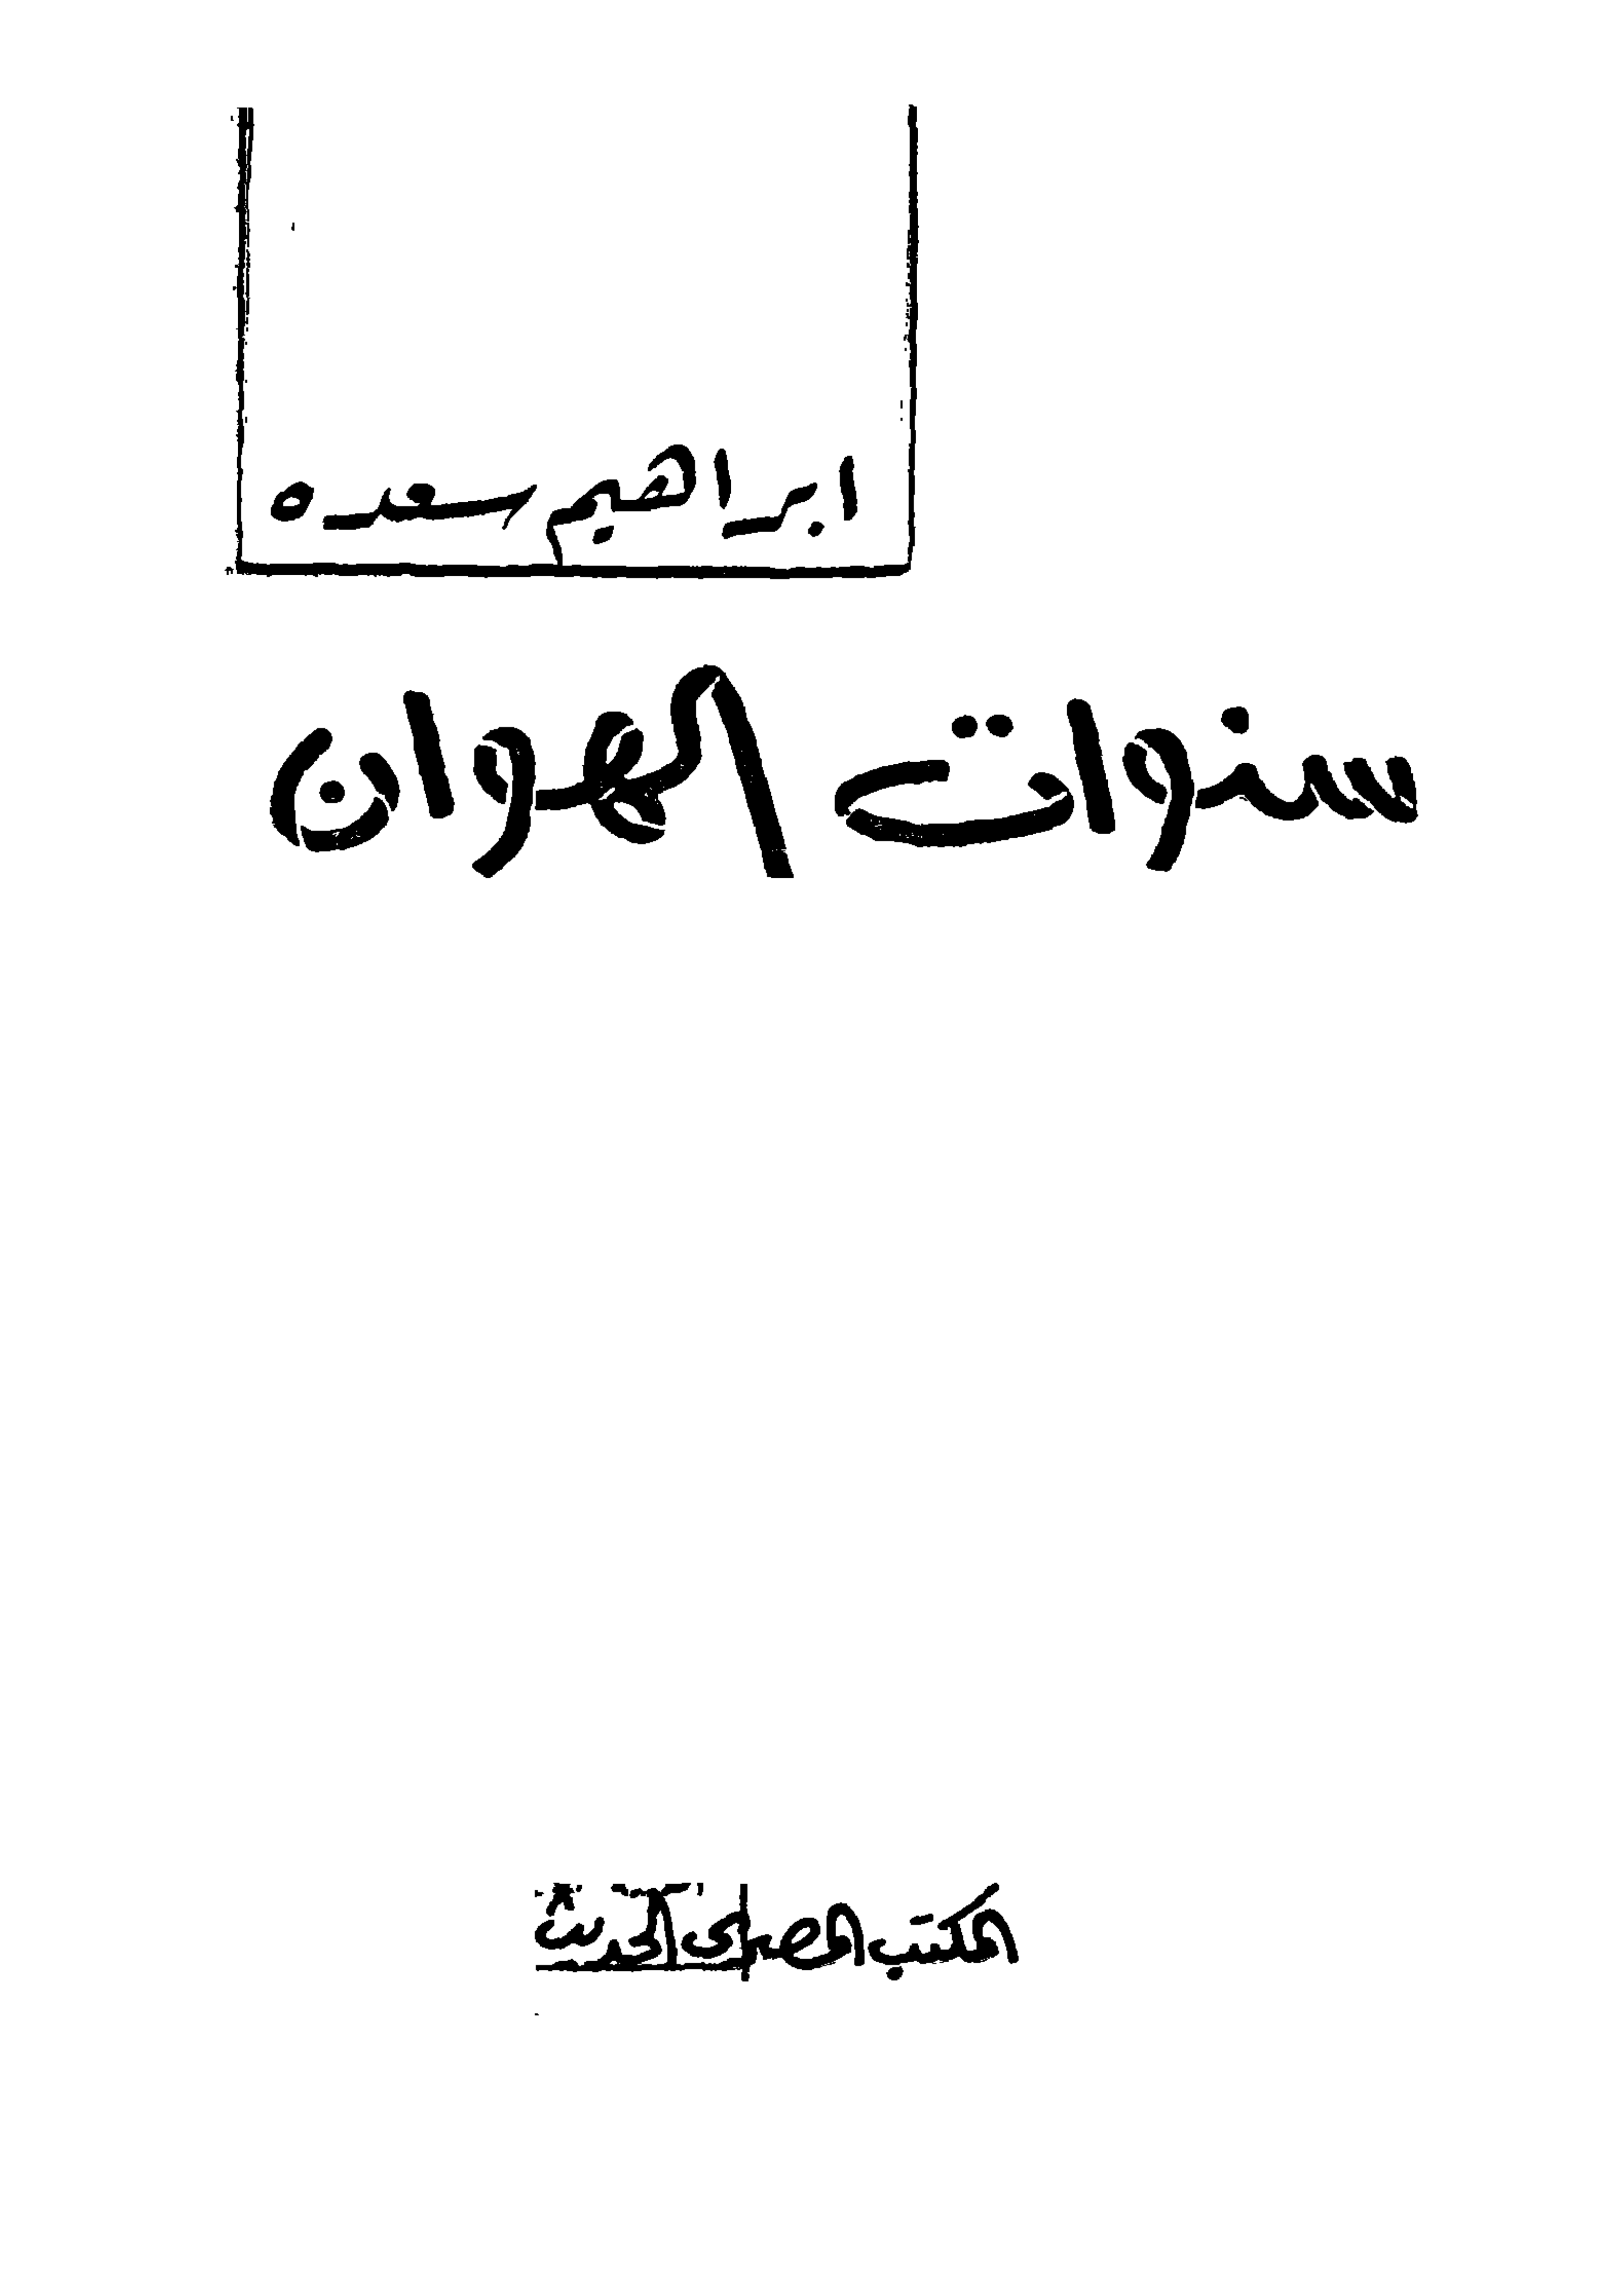 ابراهيم سعده
سنوات الهوان
المكتب المصرى الحديث